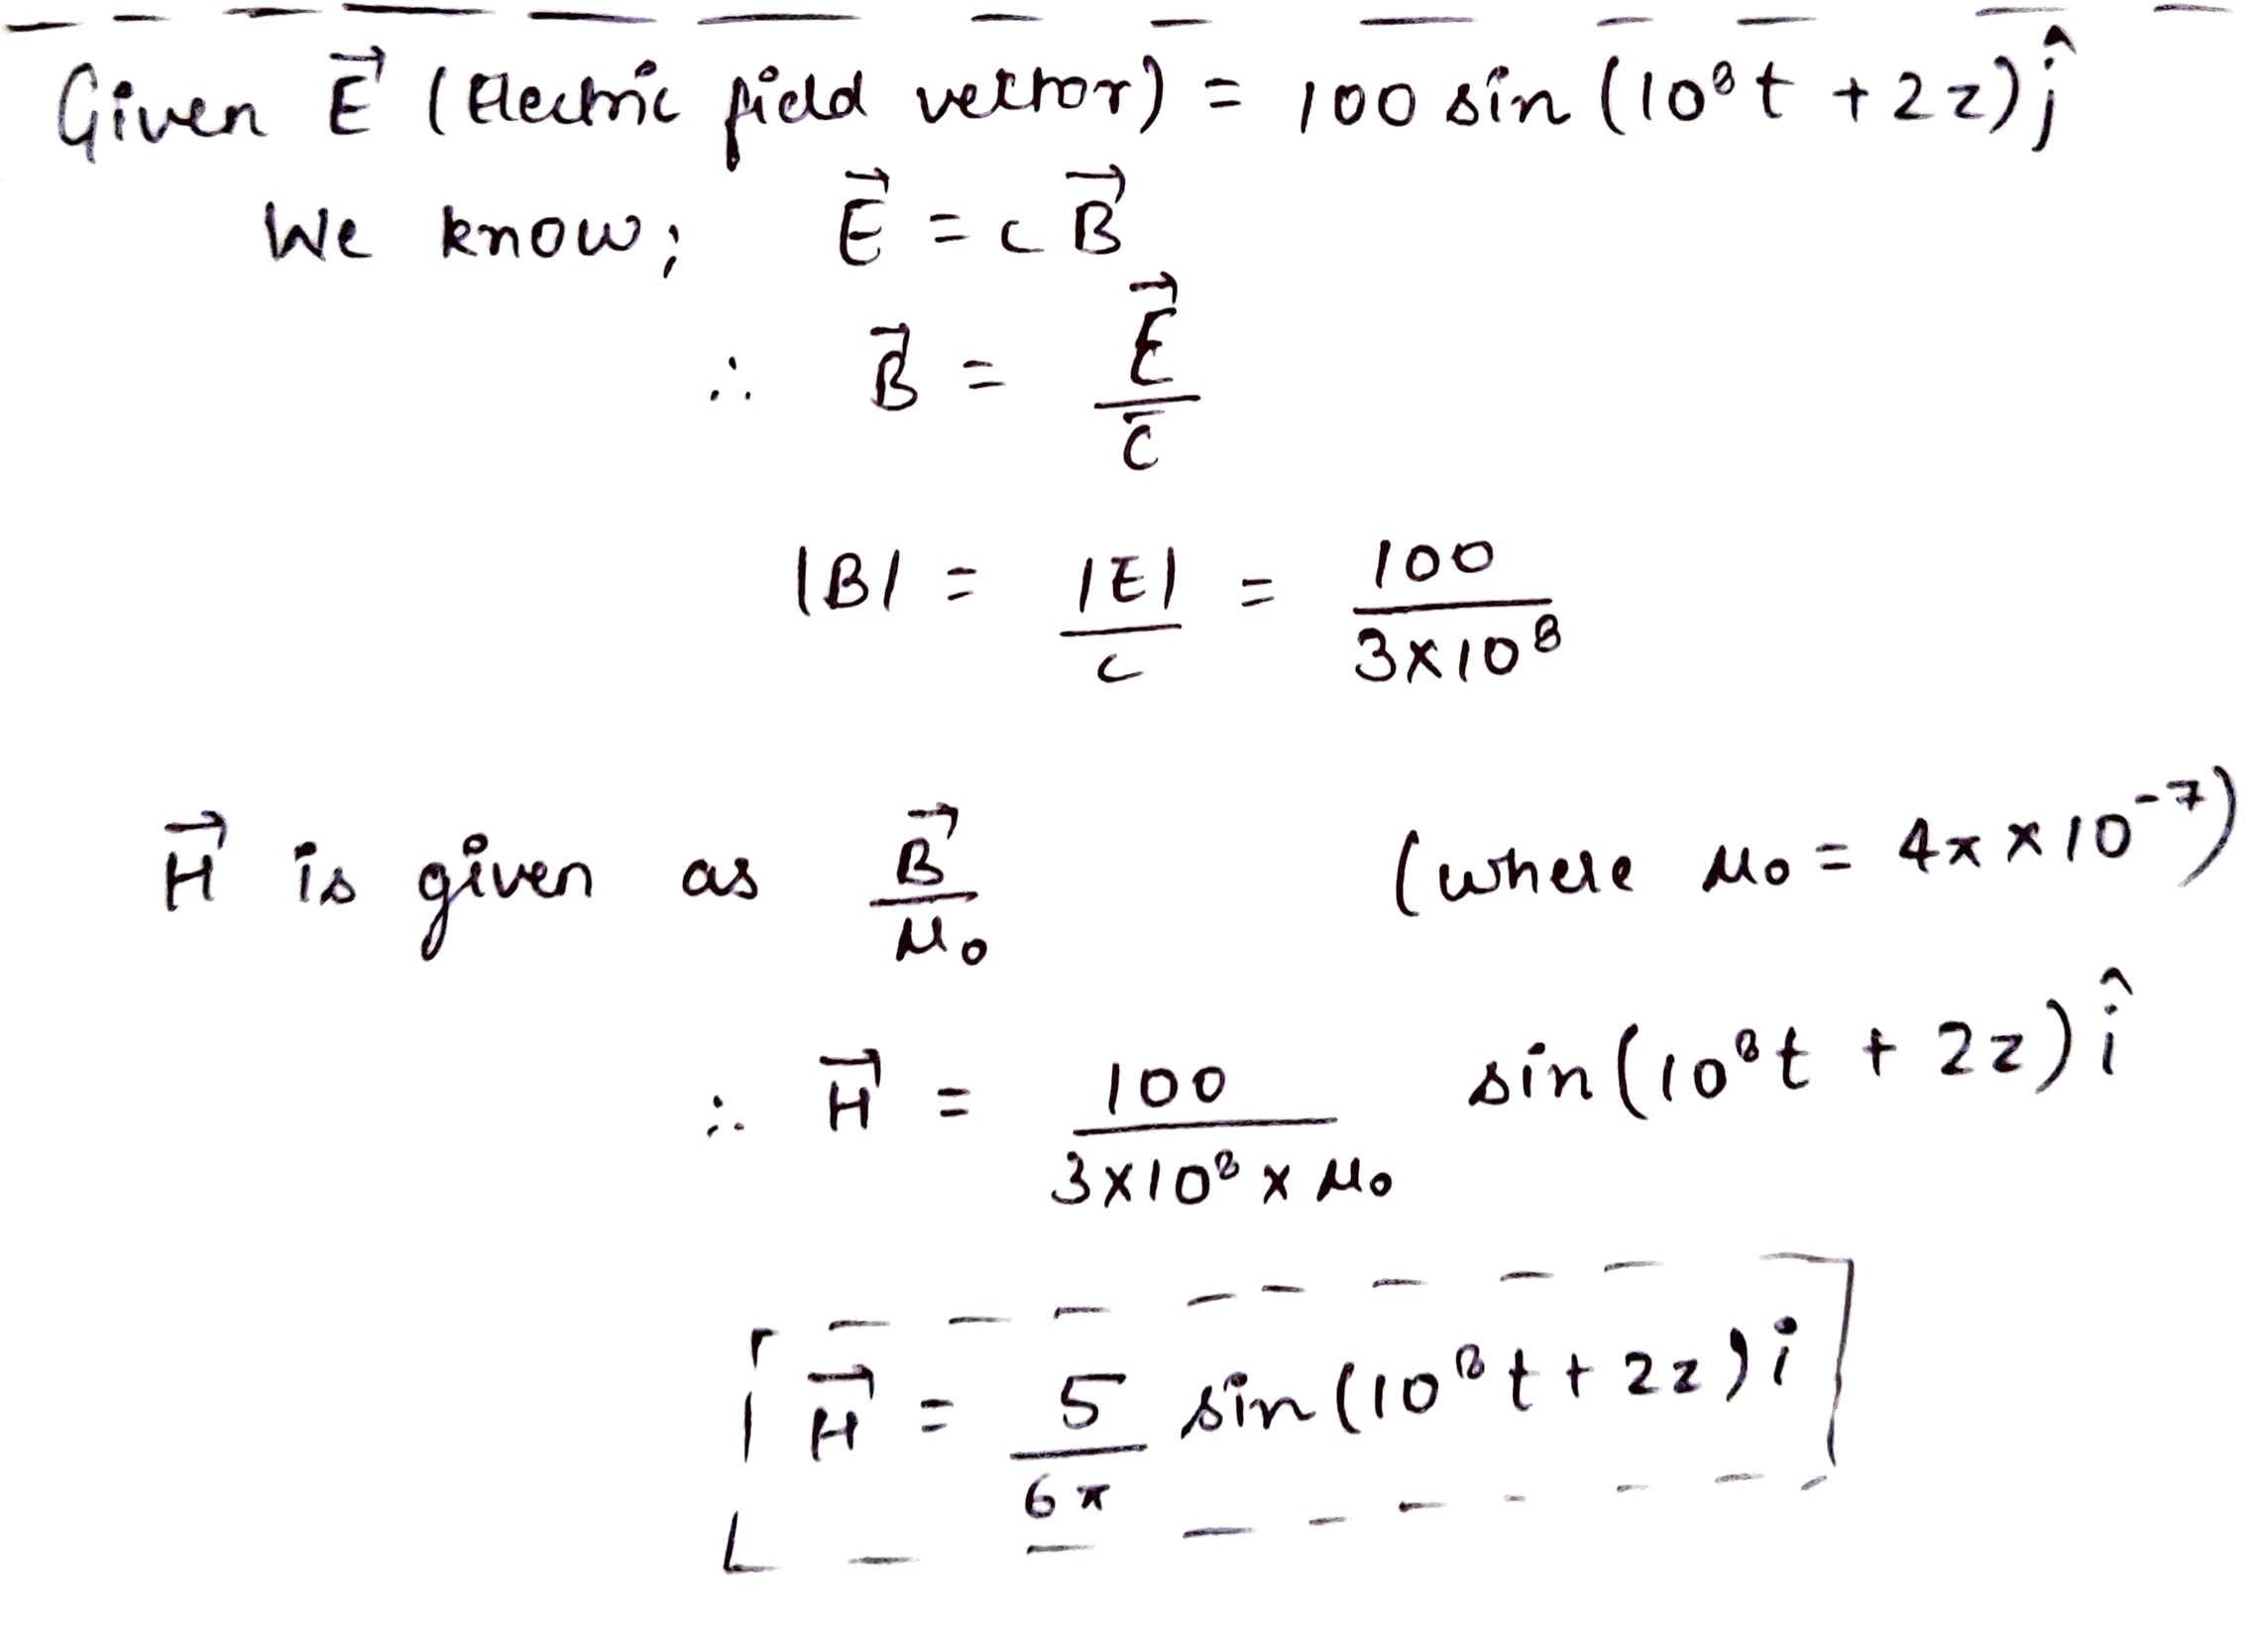 Given E⃗ (Electric field vector) = 100 sin (10⁸t + 2z) ĵ
We know; E⃗ = c B⃗
∴ B⃗ = E⃗ / c
|B| = |E| / c = 100 / 3×10⁸
H⃗ is given as B⃗ / μ₀ (where μ₀ = 4π × 10⁻⁷)
∴ H⃗ = 100 / 3×10⁸ × μ₀ sin(10⁸t + 2z) î
H⃗ = 5 / 6π sin(10⁸t + 2z) i